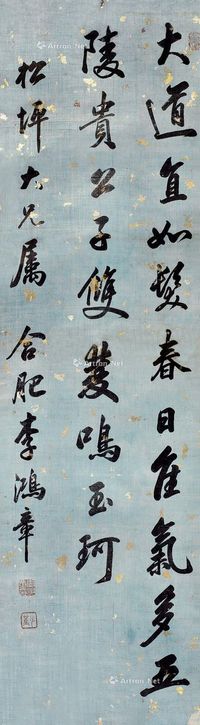 大道直如髮春日佳氣多五
陵貴公子雙雙鳴玉珂
松坪大兄属 合肥李鴻章
Artron.Net